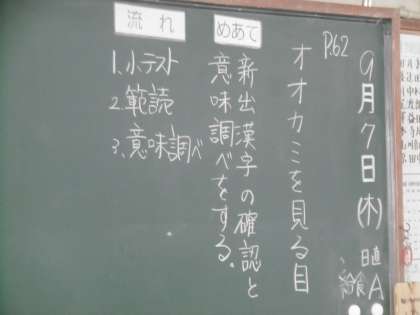 9月7日(木)
日直
給食A
P.62
オオカミを見る目
めあて
新出漢字の確認と
意味調べをする。
流れ
1.小テスト
2.範読
3.意味調べ